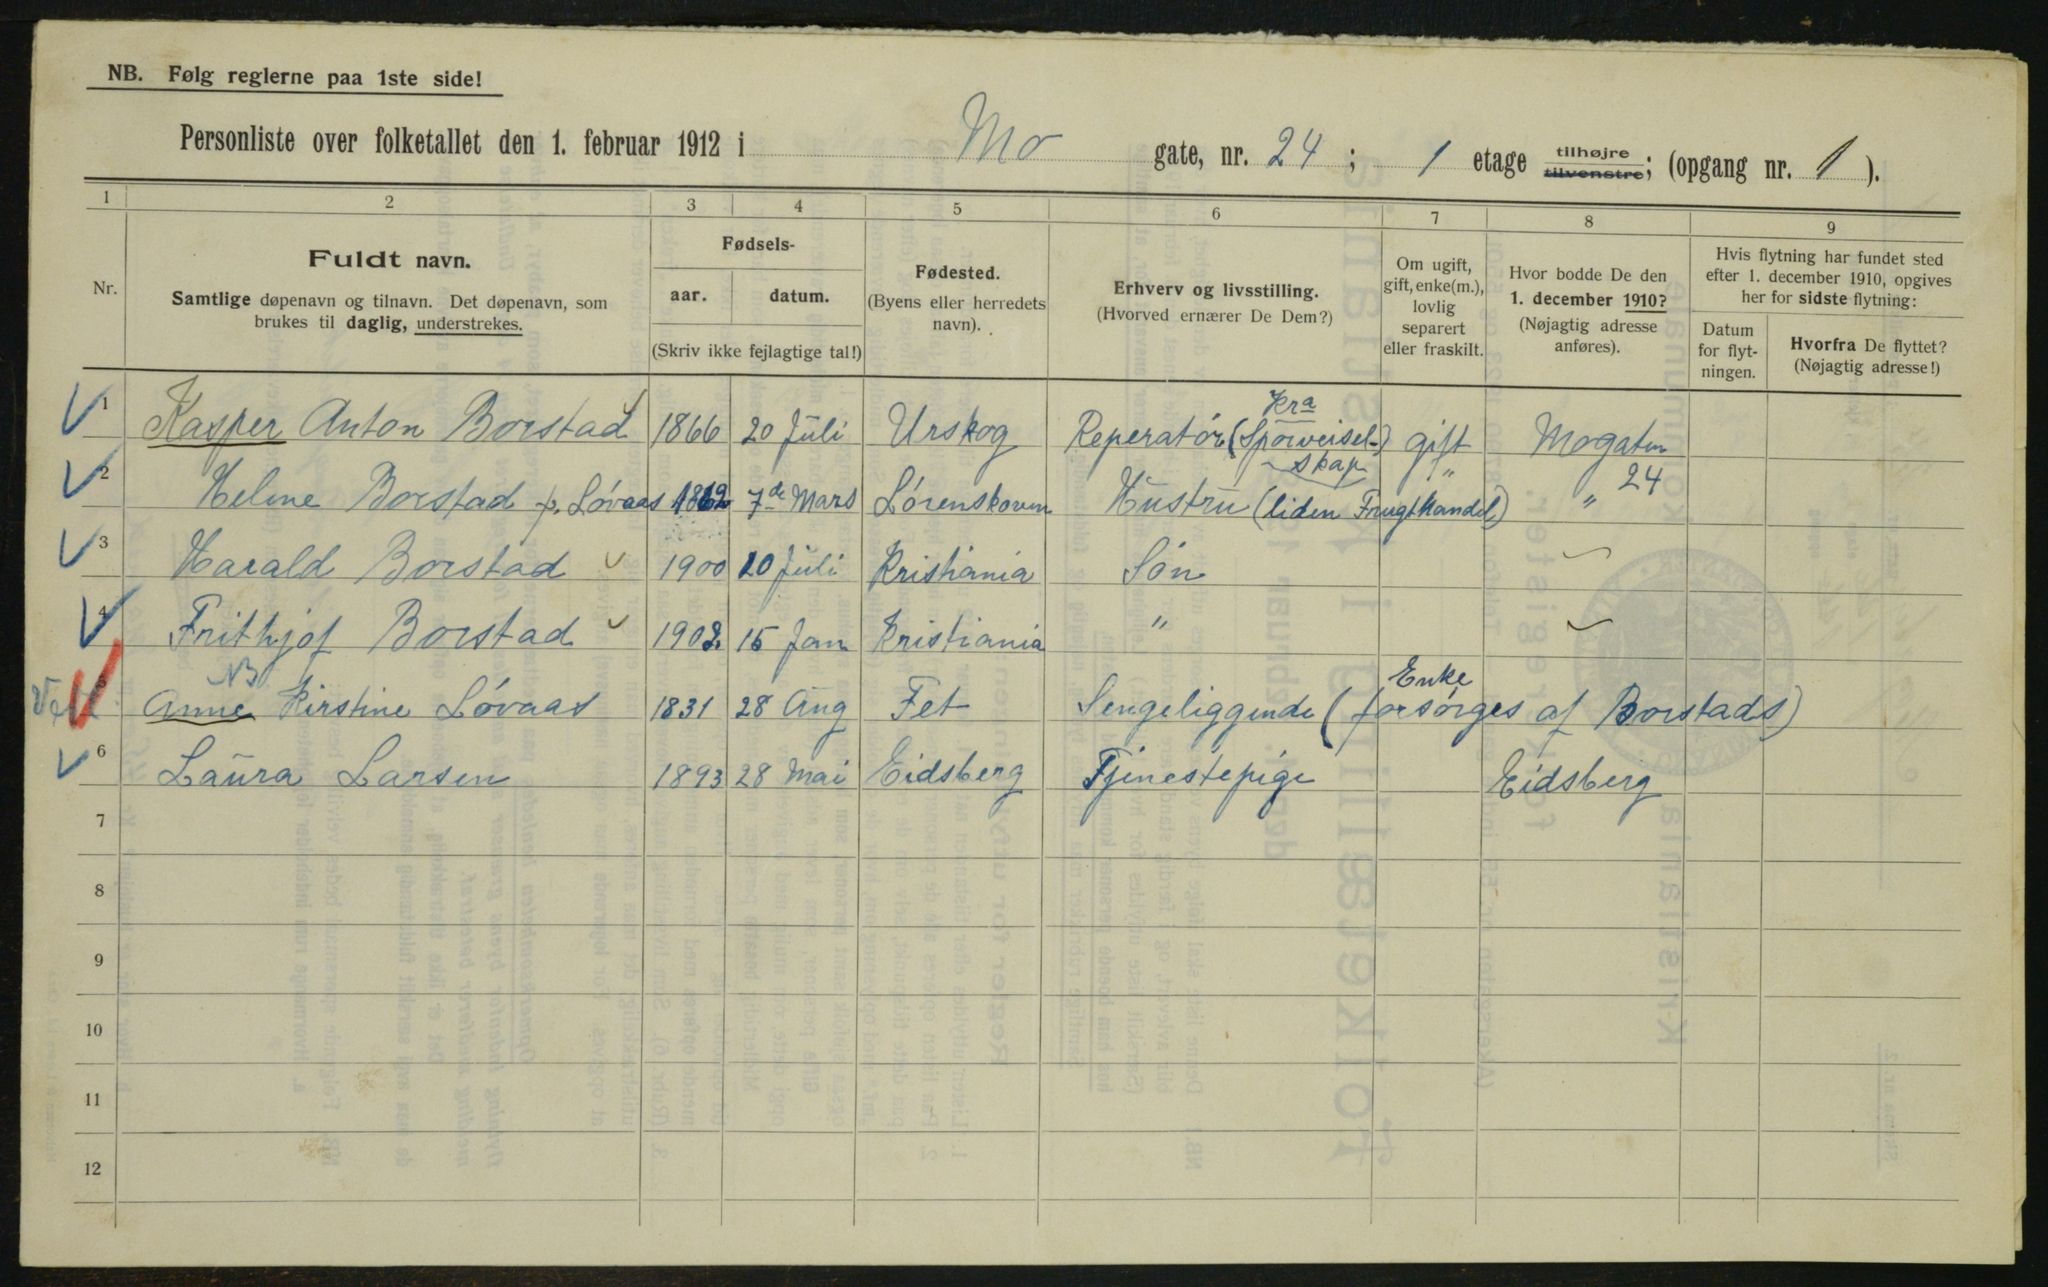 NB. Følg reglerne paa 1ste side!
Personliste over folketallet den 1. februar 1912 i Mo gate, nr. 24 ; 1 etage tilhøjre tilvenstre; (opgang nr. 1 ).
1 2 3 4 5 6 7 8 9
Nr.
Fuldt navn.
Samtlige døpenavn og tilnavn. Det døpenavn, som
brukes til daglig, understrekes.
Fødsels-
aar. datum.
(Skriv ikke fejlagtige tal!)
Fødested.
(Byens eller herredets
navn).
Erhverv og livsstilling.
(Hvorved ernærer De Dem?)
Om ugift,
gift, enke(m.),
lovlig
separert
eller fraskilt.
Hvor bodde De den
1. december 1910?
(Nøjagtig adresse
anføres).
Hvis flytning har fundet sted
efter 1. december 1910, opgives
her for sidste flytning:
Datum
for flyt-
ningen.
Hvorfra De flyttet?
(Nøjagtig adresse!)
1 Kasper Anton Borstad 1866 20 Juli Urskog Reperatör (Kra Sporveisel-skap) gift Mogaten 24
2 Helene Borstad f. Lövaas 1862 7de Mars Lörenskoven Hustru (liden Frugthandel) " "
3 Harald Borstad 1900 20 Juli Kristiania Sön
4 Frithjof Borstad 1902 15 Jan Kristiania "
5 NB Anne Kirstine Lövaas 1831 28 Aug Fet Sengeliggende (Enke forsörges af Borstads)
6 Laura Larsen 1893 28 Mai Eidsberg Tjenestepige Eidsberg
7
8
9
10
11
12